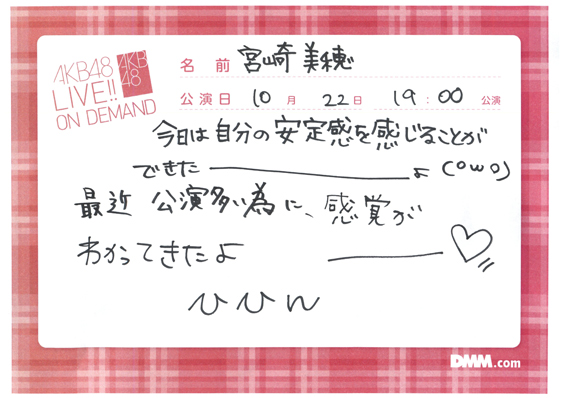 AKB48
LIVE!!
ON DEMAND
AKB
48
名前 宮崎美穂
公演日 10月 22日 19:00 公演
今日は自分の安定感を感じることが
できた―――よ(OwO)
最近 公演多い為に、感覚が
わかってきたよ ―――♡
ひひん
DMM.com